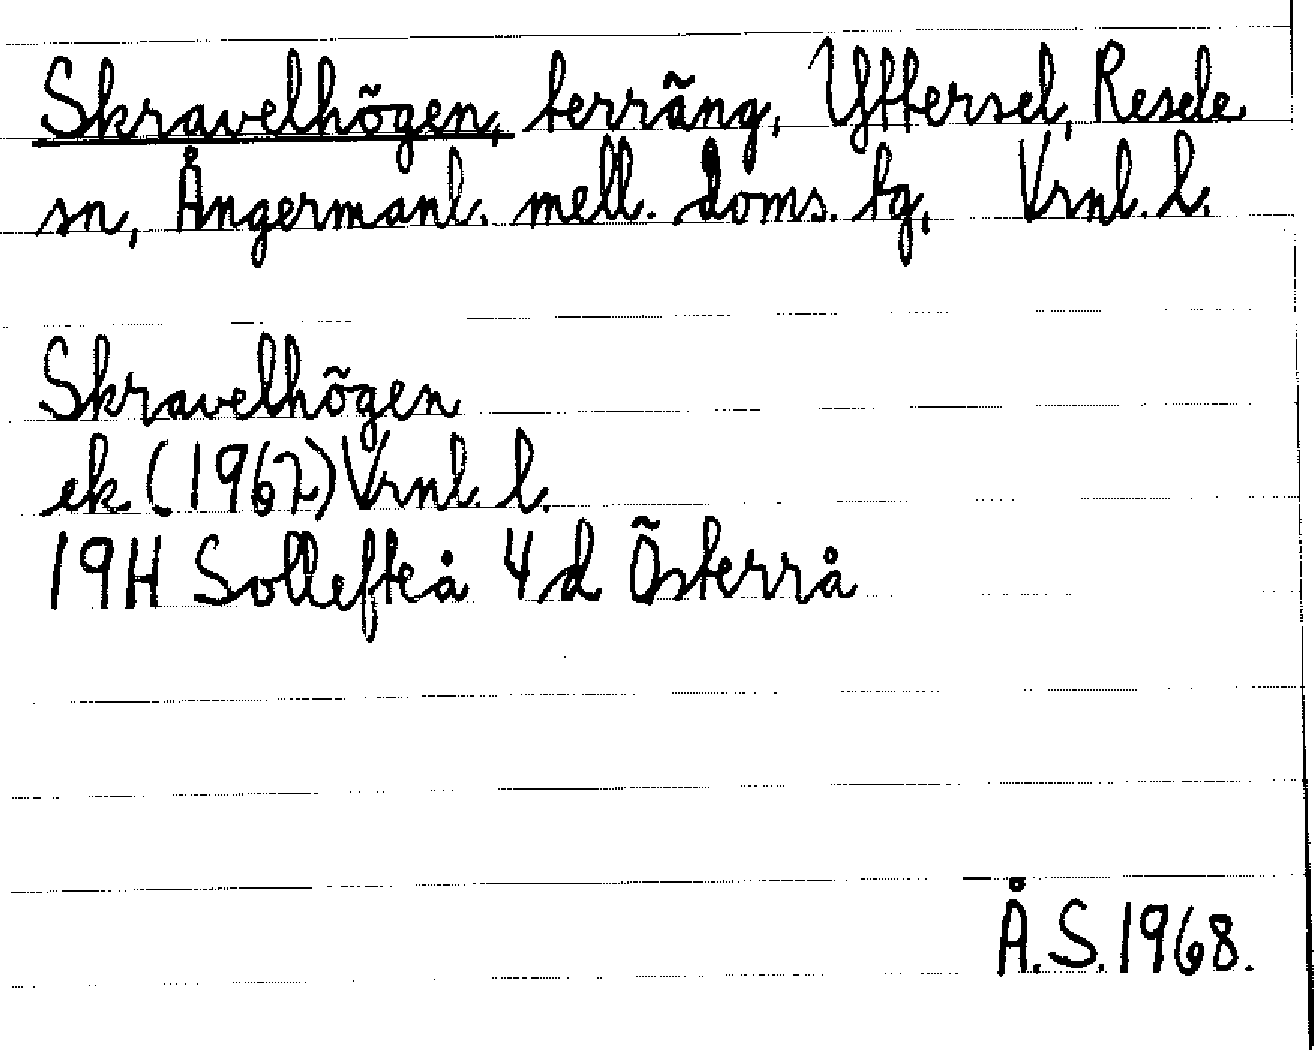 Skravelhögen, terräng, Yttersel, Resele
sn, Ångermanl. mell. doms. tg, Vrnl. l.
Skravelhögen
ek (1967) Vrnl. l.
19H Sollefteå 4d Österrå
Å.S. 1968.